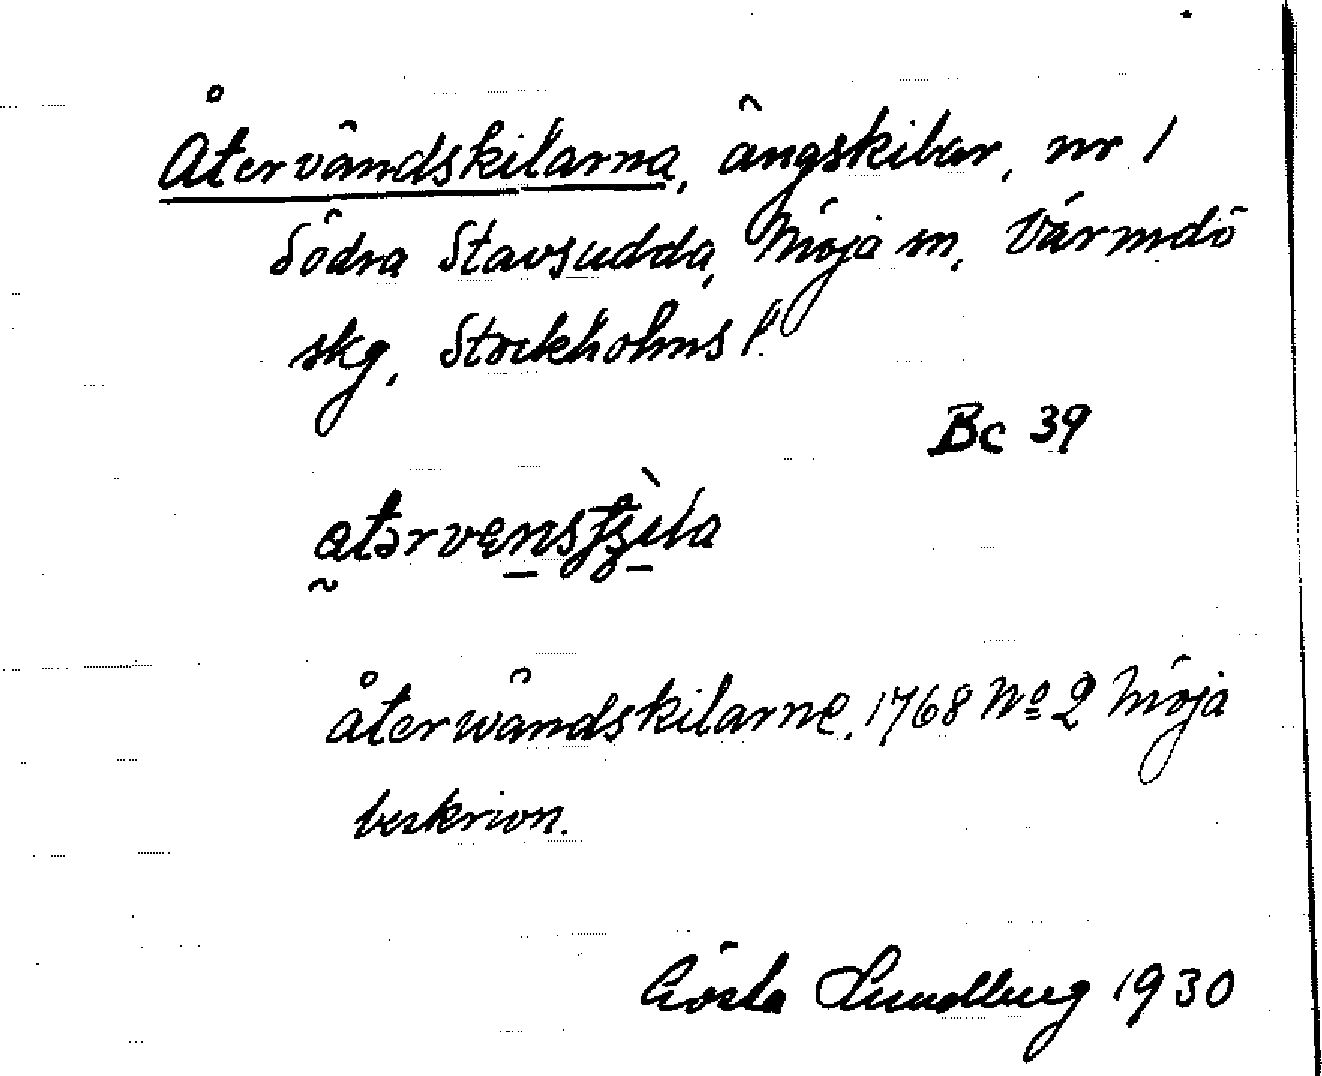 Återvändskilarna, ängskilar, nr 1
Södra Stavsudda, Möja sn, Värmdö
skg, Stockholms l.
Bc 39
återwändskilarne. 1768 No 2 Möja
beskrion.
Gösta Lundberg 1930